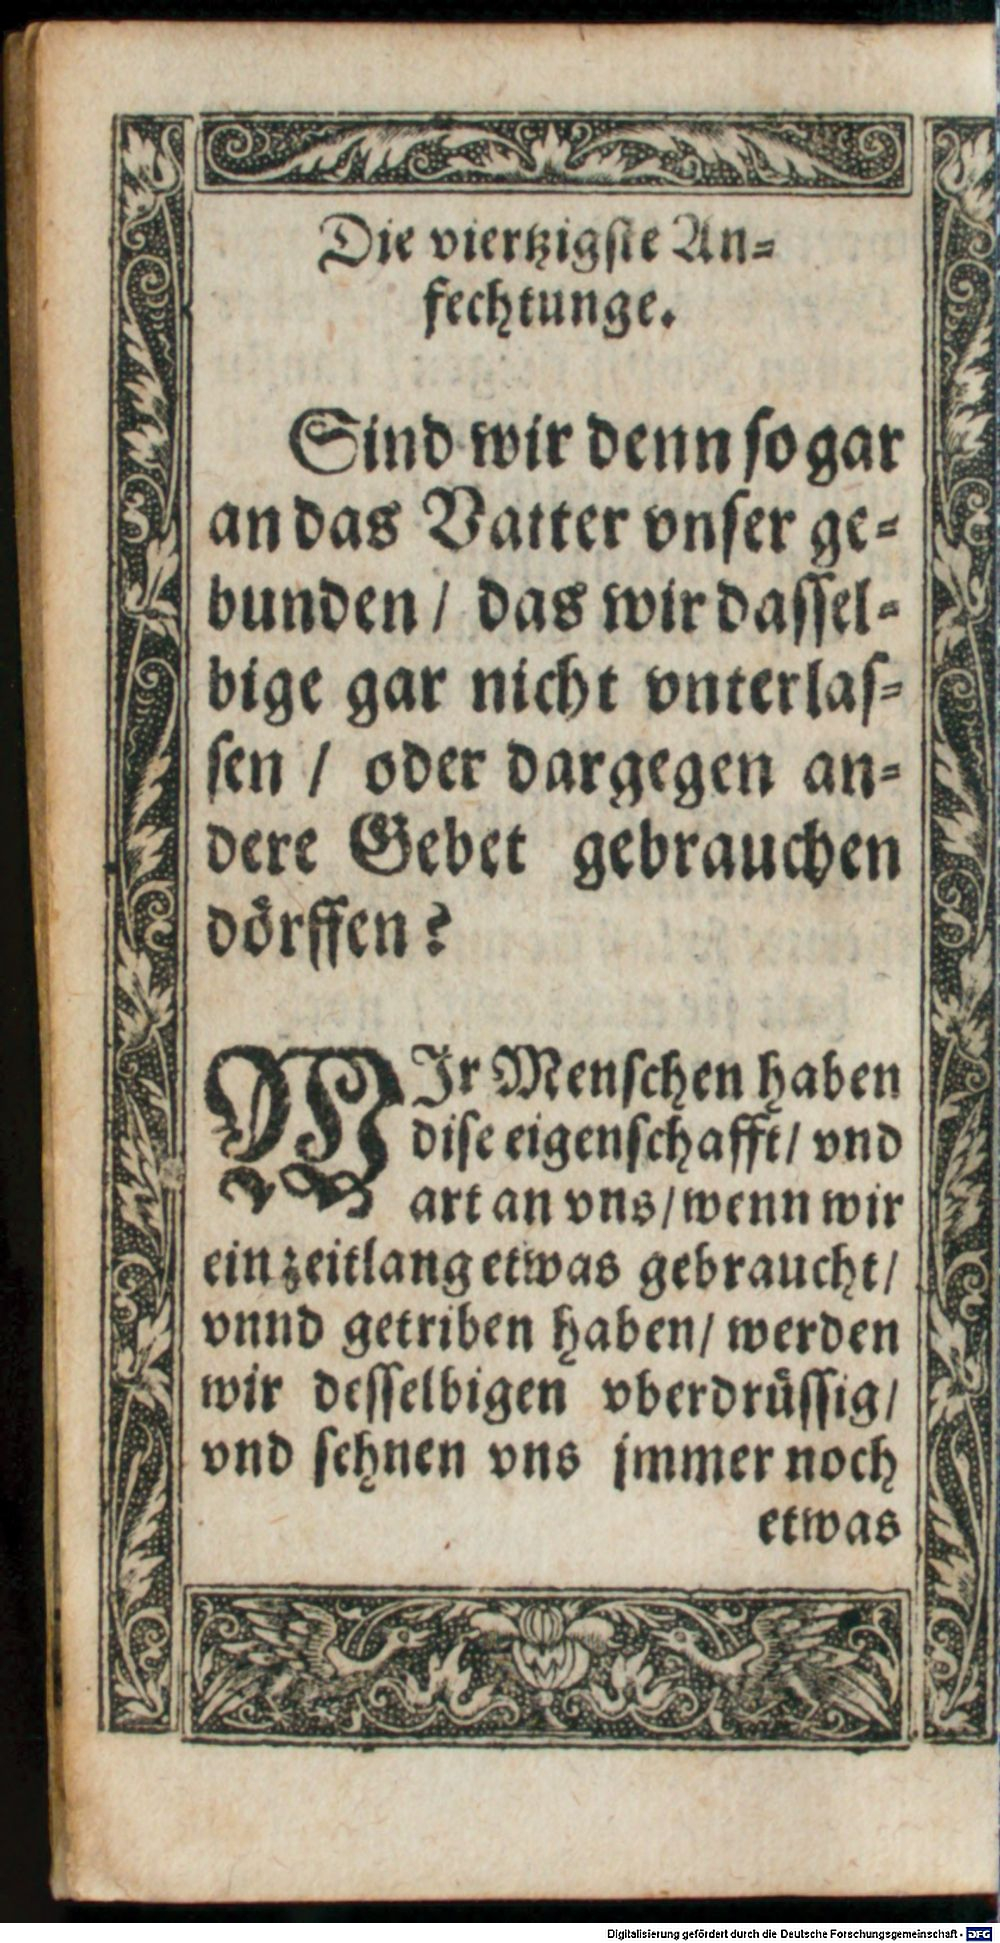 Die viertzigste An=
fechtunge.
Sind wir denn so gar
an das Vatter vnser ge=
bunden / das wir dassel=
bige gar nicht vnterlas=
sen / oder dargegen an=
dere Gebet gebrauchen
dörffen?
WIr Menschen haben
dise eigenschafft / vnd
art an vns / wenn wir
ein zeitlang etwas gebraucht /
vnnd getriben haben / werden
wir desselbigen vberdrüssig /
vnd sehnen vns jmmer noch
etwas
Digitalisierung gefördert durch die Deutsche Forschungsgemeinschaft - DFG